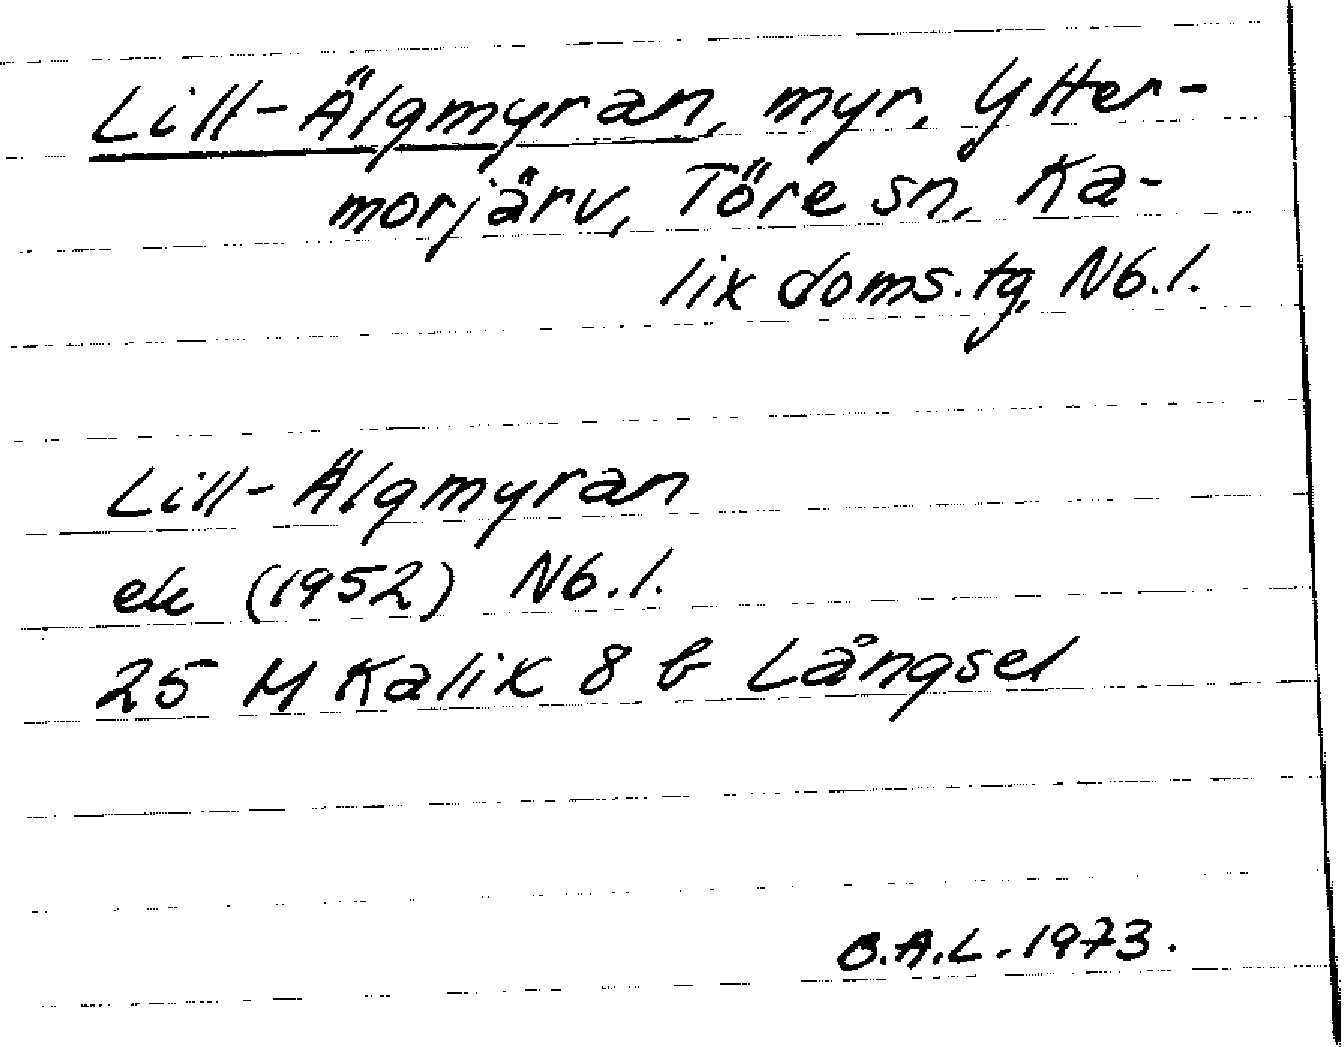 Lill-Älgmyran, myr, Ytter-
morjärv, Töre sn, Ka-
lix doms.tg, Nb.l.
Lill-Älgmyran
ek (1952) Nb.l.
25 M Kalix 8 b Långsel
O.A.L. 1973.